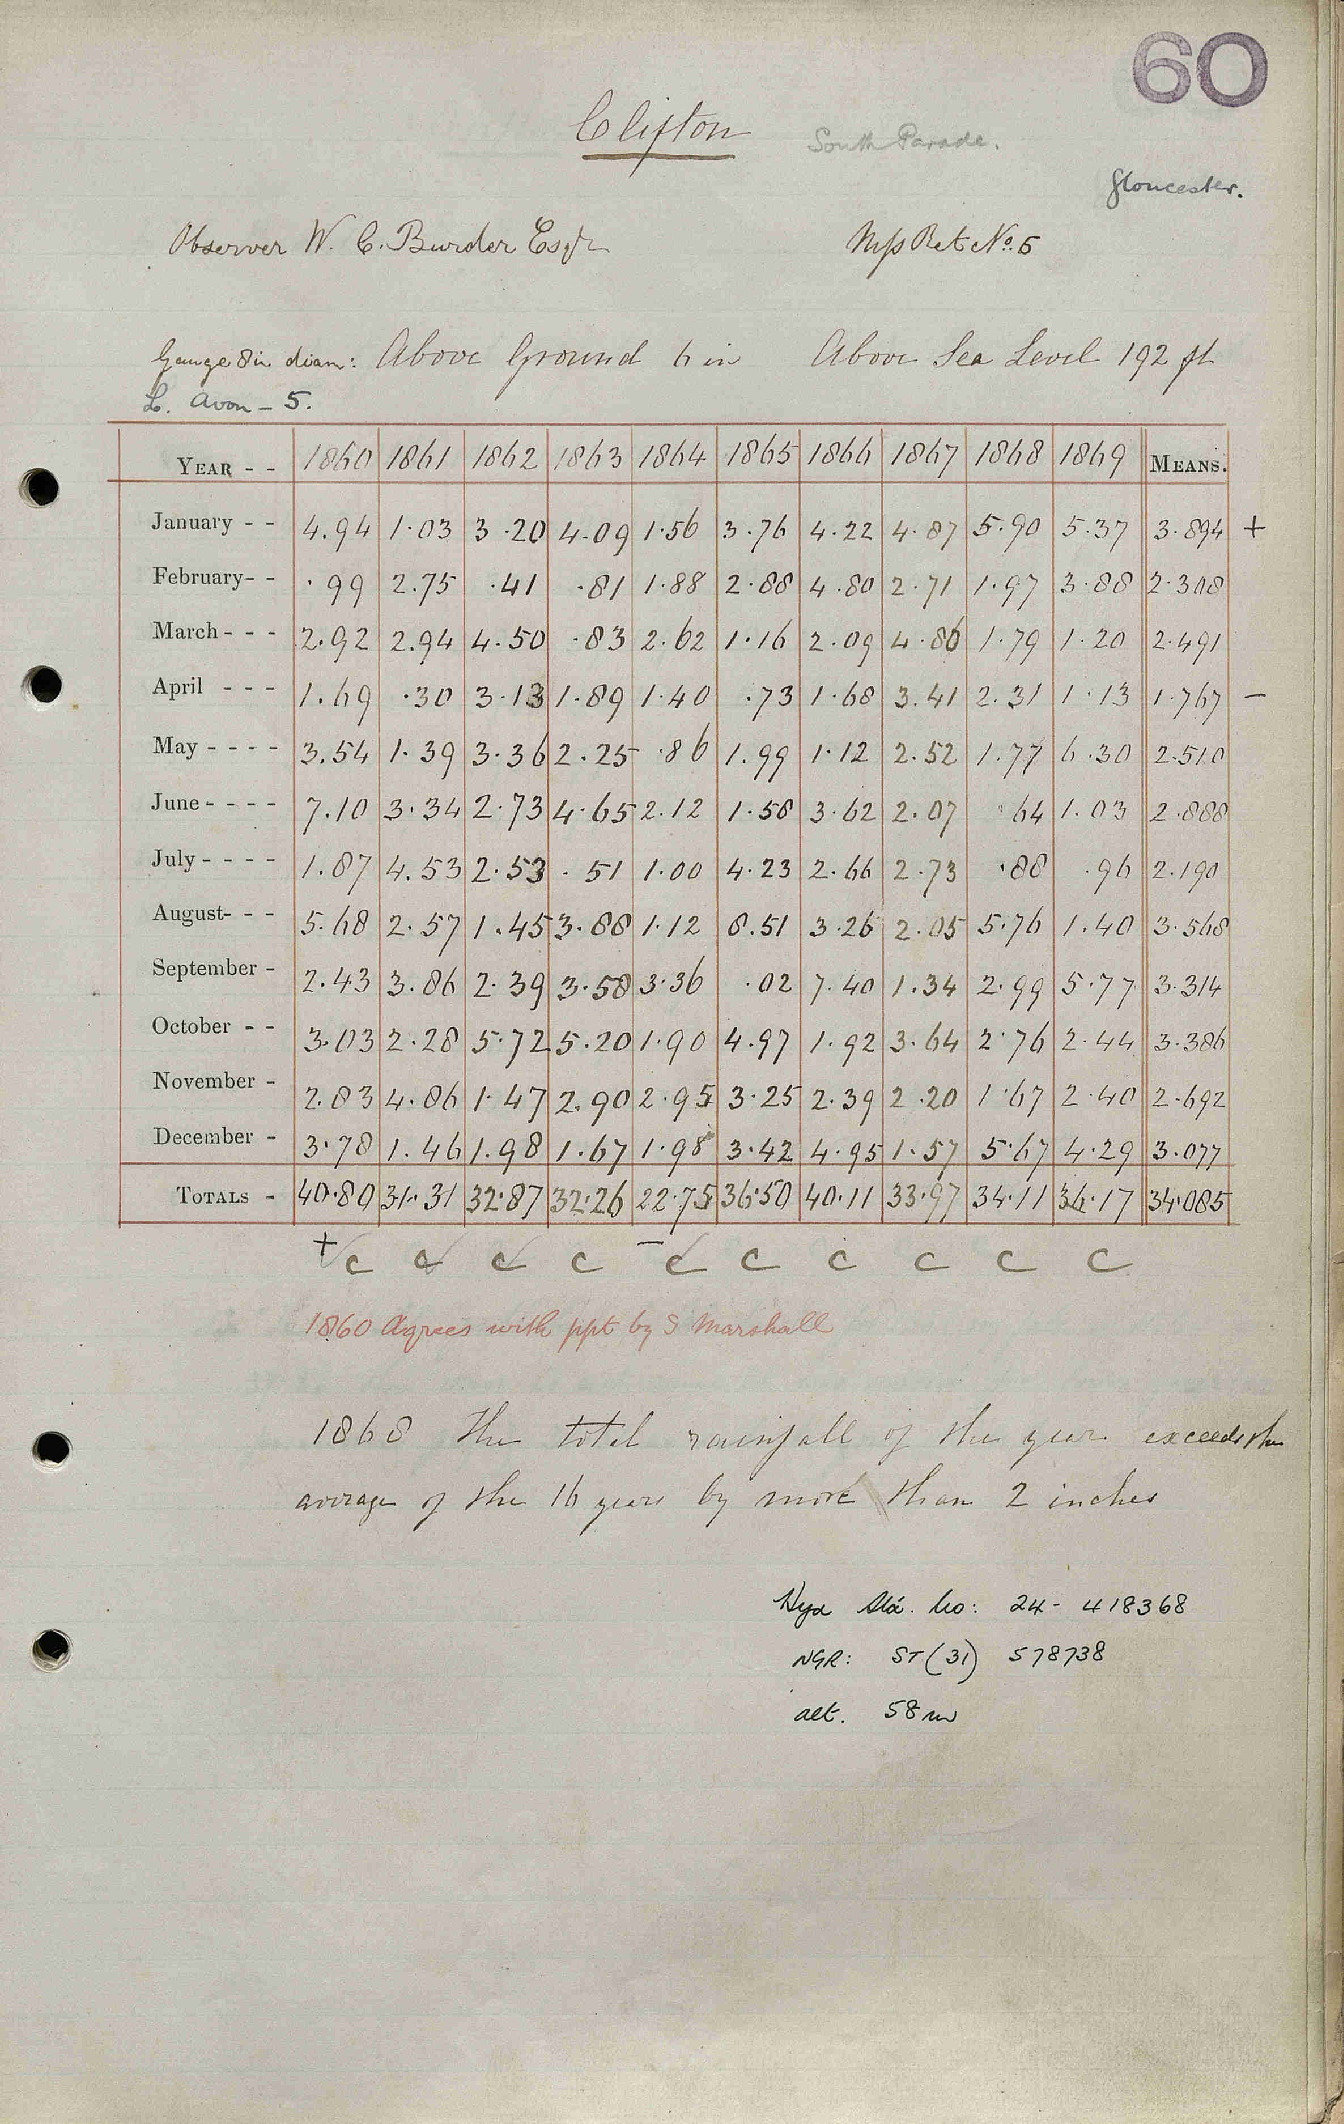 60
Clifton South Parade.
Gloucester.
Observer W. C. Burder Esqr Mss Ret No. 5
Gauge 8 in diam: Above Ground 6 in Above Sea Level 192 ft
L. Avon - 5.
YEAR - - 1860 1861 1862 1863 1864 1865 1866 1867 1868 1869 MEANS.
January - - 4.94 1.03 3.20 4.09 1.56 3.76 4.22 4.87 5.90 5.37 3.894 +
February - - .99 2.75 .41 .81 1.88 2.88 4.80 2.71 1.97 3.88 2.308
March - - - 2.92 2.94 4.50 .83 2.62 1.16 2.09 4.86 1.79 1.20 2.491
April - - - 1.69 .30 3.13 1.89 1.40 .73 1.68 3.41 2.31 1.13 1.767 -
May - - - - 3.54 1.39 3.36 2.25 .86 1.99 1.12 2.52 1.77 6.30 2.510
June - - - - 7.10 3.34 2.73 4.65 2.12 1.58 3.62 2.07 .64 1.03 2.888
July - - - - 1.87 4.53 2.53 .51 1.00 4.23 2.66 2.73 .88 .96 2.190
August - - - 5.68 2.57 1.45 3.88 1.12 8.51 3.26 2.05 5.76 1.40 3.568
September - 2.43 3.86 2.39 3.58 3.36 .02 7.40 1.34 2.99 5.77 3.314
October - - 3.03 2.28 5.72 5.20 1.90 4.97 1.92 3.64 2.76 2.44 3.386
November - 2.83 4.86 1.47 2.90 2.95 3.25 2.39 2.20 1.67 2.40 2.692
December - 3.78 1.46 1.98 1.67 1.98 3.42 4.95 1.57 5.67 4.29 3.077
TOTALS - 40.80 31.31 32.87 32.26 22.75 36.50 40.11 33.97 34.11 36.17 34.085
+ c c c c - c c c c c c
1860 Agrees with ppt by S Marshall
1868 The total rainfall of the year exceeds the
average of the 16 years by more than 2 inches
Hyd Sta. No: 24- 418368
NGR: ST (31) 578738
alt. 58m